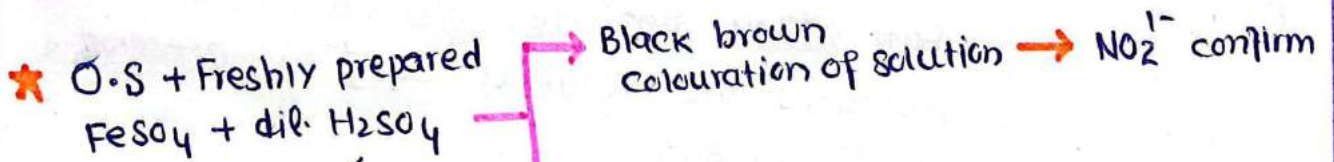 ★ O.S + Freshly prepared
FeSO4 + dil. H2SO4
→ Black brown
colouration of solution → NO2^1- confirm